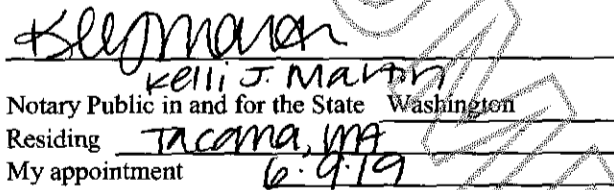 Kelli J. Martin
Notary Public in and for the State Washington
Residing Tacoma, WA
My appointment 6.9.19